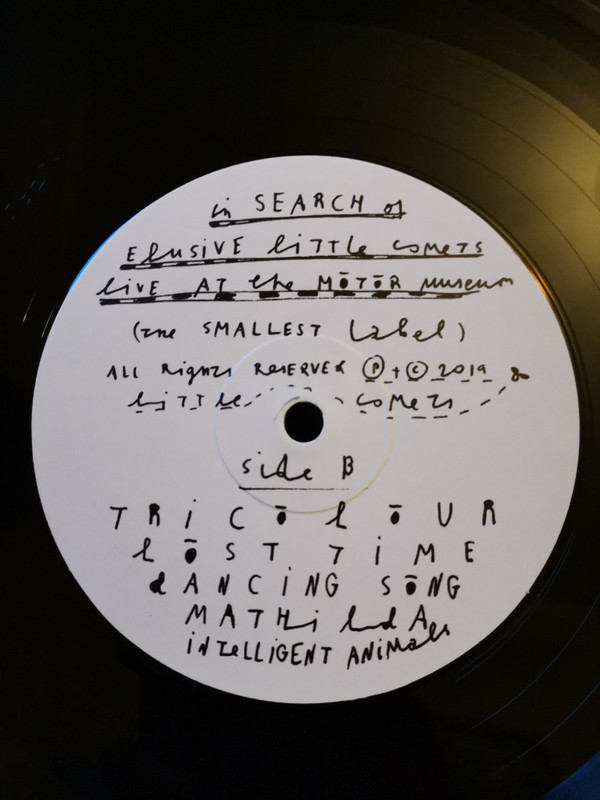 in SEARCH of
ElusiVE little comets
livE AT the MŌTŌR museum
(the SMALLEST label)
All Rights RESERVED Ⓟ + © 2019 &
little comets
side B
TRiCŌlŌUR
lŌST TiME
dANCiNG SŌNG
MATHildA
iNTelLiGENT ANiMals